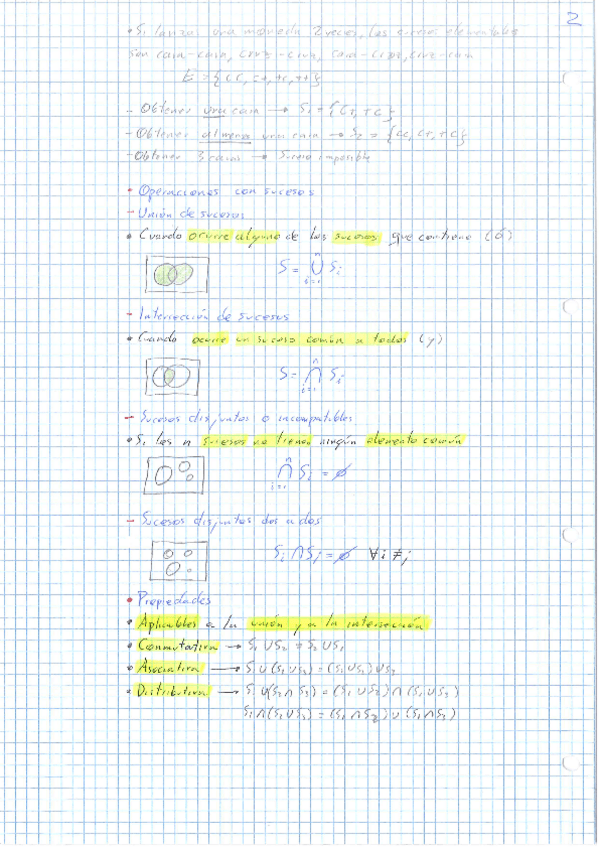 2
• Si lanzas una moneda 2 veces, los sucesos elementales
son cara-cara, cruz-cruz, cara-cruz, cruz-cara
E = {cc, ++, +c, c+}
- Obtener una cara → S₁ = {C+, +C}
- Obtener al menos una cara → S₂ = {CC, C+, +C}
- Obtener 3 caras → Suceso imposible
• Operaciones con sucesos
- Unión de sucesos
• Cuando ocurre alguno de los sucesos que contiene (ó)
S = ⋃ⁿᵢ₌₁ Sᵢ
- Intersección de sucesos
• Cuando ocurre un suceso común a todos (y)
S = ⋂ⁿᵢ₌₁ Sᵢ
- Sucesos disjuntos o incompatibles
• Si los n sucesos no tienen ningún elemento común
⋂ⁿᵢ₌₁ Sᵢ = ∅
- Sucesos disjuntos dos a dos
Sᵢ ∩ Sⱼ = ∅ ∀ i ≠ j
• Propiedades
• Aplicables a la unión y a la intersección
• Conmutativa → S₁ ∪ S₂ = S₂ ∪ S₁
• Asociativa → S₁ ∪ (S₂ ∪ S₃) = (S₁ ∪ S₂) ∪ S₃
• Distributiva → S₁ ∪ (S₂ ∩ S₃) = (S₁ ∪ S₂) ∩ (S₁ ∪ S₃)
S₁ ∩ (S₂ ∪ S₃) = (S₁ ∩ S₂) ∪ (S₁ ∩ S₃)